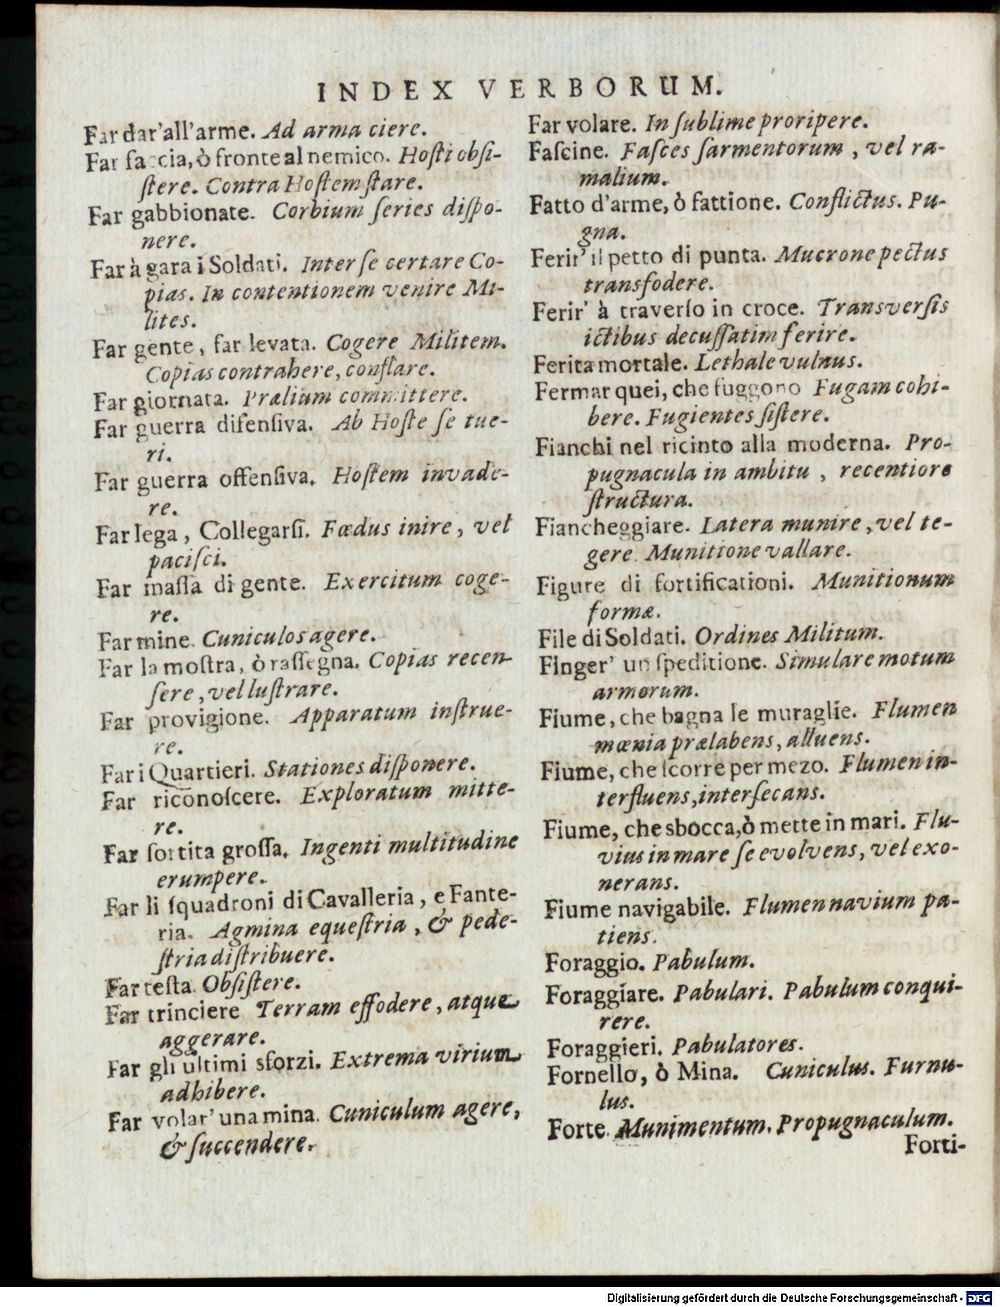 INDEX VERBORUM.
Far dar'all'arme. Ad arma ciere.
Far faccia, ò fronte al nemico. Hosti obsi-
stere. Contra Hostem stare.
Far gabbionate. Corbium series dispo-
nere.
Far à gara i Soldati. Inter se certare Co-
pias. In contentionem venire Mi-
lites.
Far gente, far levata. Cogere Militem.
Copias contrahere, conflare.
Far giornata. Prælium committere.
Far guerra difensiva. Ab Hoste se tue-
ri.
Far guerra offensiva. Hostem invade-
re.
Far lega, Collegarsi. Fœdus inire, vel
pacisci.
Far massa di gente. Exercitum coge-
re.
Far mine. Cuniculos agere.
Far la mostra, ò rassegna. Copias recen-
sere, vel lustrare.
Far provigione. Apparatum instrue-
re.
Far i Quartieri. Stationes disponere.
Far riconoscere. Exploratum mitte-
re.
Far sortita grossa. Ingenti multitudine
erumpere.
Far li squadroni di Cavalleria, e Fante-
ria. Agmina equestria, & pede-
stria distribuere.
Far testa. Obsistere.
Far trinciere Terram effodere, atque
aggerare.
Far gli ultimi sforzi. Extrema virium
adhibere.
Far volar' una mina. Cuniculum agere,
& succendere.
Far volare. In sublime proripere.
Fascine. Fasces sarmentorum, vel ra-
malium.
Fatto d'arme, ò fattione. Conflictus. Pu-
gna.
Ferir' il petto di punta. Mucrone pectus
transfodere.
Ferir' à traverso in croce. Transversis
ictibus decussatim ferire.
Ferita mortale. Lethale vulnus.
Fermar quei, che fuggono Fugam cohi-
bere. Fugientes sistere.
Fianchi nel ricinto alla moderna. Pro-
pugnacula in ambitu, recentiore
structura.
Fiancheggiare. Latera munire, vel te-
gere. Munitione vallare.
Figure di fortificationi. Munitionum
formæ.
File di Soldati. Ordines Militum.
Finger' un speditione. Simulare motum
armorum.
Fiume, che bagna le muraglie. Flumen
mœnia prælabens, alluens.
Fiume, che scorre per mezo. Flumen in-
terfluens, intersecans.
Fiume, che sbocca, ò mette in mari. Flu-
vius in mare se evolvens, vel exo-
nerans.
Fiume navigabile. Flumen navium pa-
tiens.
Foraggio. Pabulum.
Foraggiare. Pabulari. Pabulum conqui-
rere.
Foraggieri. Pabulatores.
Fornello, ò Mina. Cuniculus. Furnu-
lus.
Forte. Munimentum. Propugnaculum.
Forti-
Digitalisierung gefördert durch die Deutsche Forschungsgemeinschaft - DFG